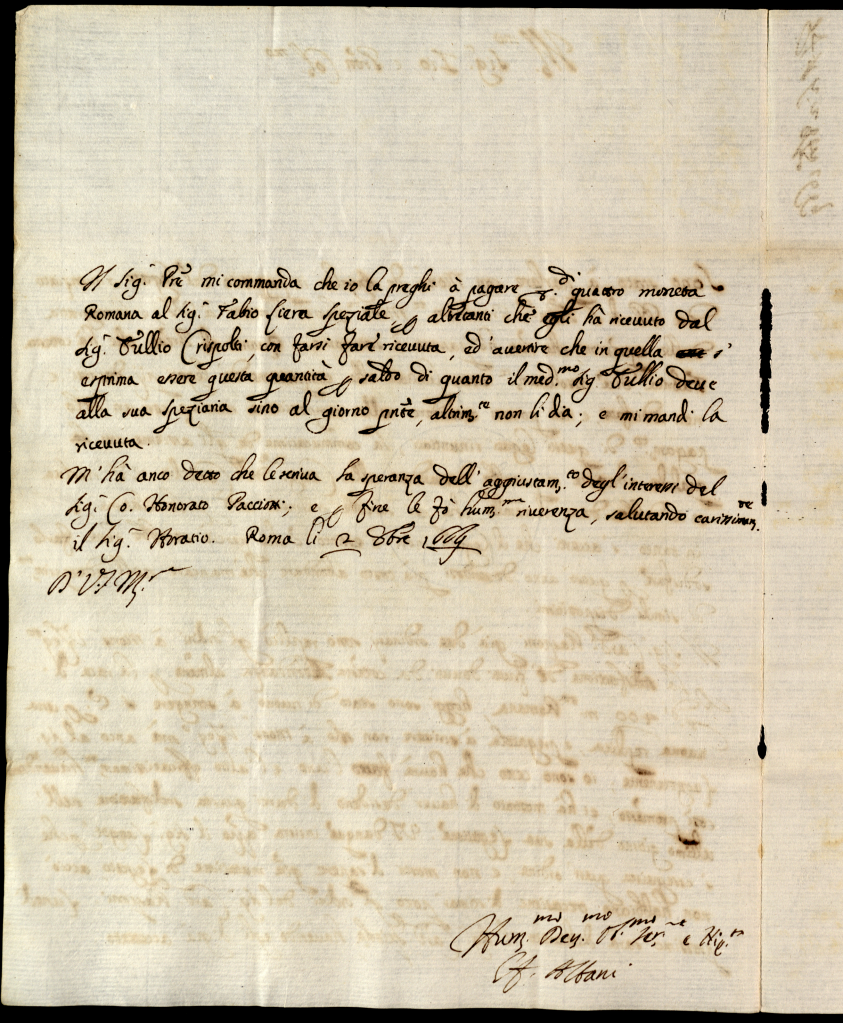 Il Sig.r Pre mi commanda che io la preghi à pagare Δ.di quattro moneta
Romana al Sig.r Fabio Ciera speziale p altretanti che egli hà riceuuto dal
Sig.r Tullio Crispolti, con farsi fare riceuuta, ed' auertire che in quella s'
esprima essere questa quantità p saldo di quanto il med.mo Sig.r Tullio deue
alla sua speziaria sino al giorno pnte, altrim.te non li dia; e mi mandi la
riceuuta.
M' hà anco detto che le scriua la speranza dell' aggiustam.to degl' interessi del
Sig.r Co. Honorato; e p fine le fò hum.ma riuerenza, salutando carissimam.te
il Sig.r Horatio. Roma li 2 8bre 1669
D' V.S. M.
Hum.mo Deu.mo Ob.mo Ser.re e Nip.te
Albani